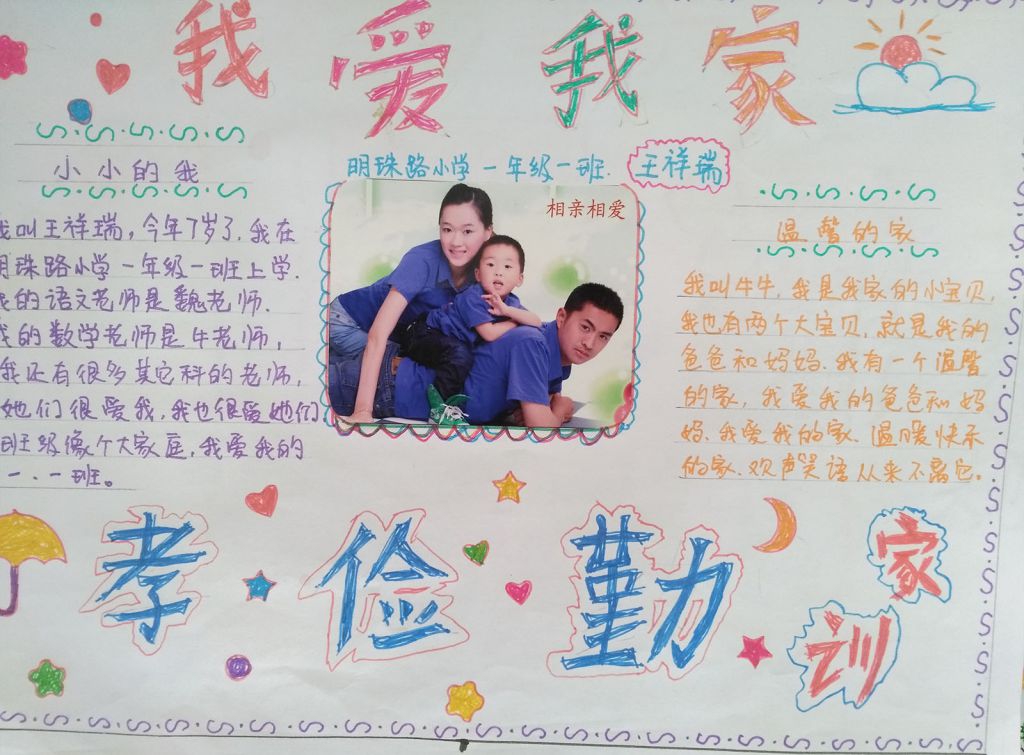 我爱我家
明珠路小学一年级一班.
王祥瑞
相亲相爱
小小的我
我叫王祥瑞,今年7岁了.我在
明珠路小学一年级一班上学.
我的语文老师是魏老师.
我的数学老师是牛老师,
我还有很多其它科的老师,
她们很爱我,我也很爱她们
班级像个大家庭,我爱我的
一.一班。
温馨的家
我叫牛牛,我是我家的小宝贝,
我也有两个大宝贝,就是我的
爸爸和妈妈.我有一个温馨
的家,我爱我的爸爸和妈
妈.我爱我的家.温暖快乐
的家.欢声笑语从来不离它.
孝俭勤
家训